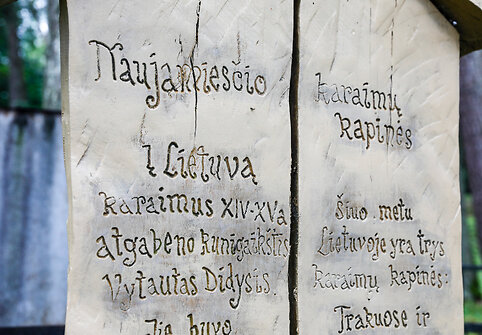 Naujamiesčio
Į Lietuvą
karaimus XIV-XV a
atgabeno kunigaikštis
Vytautas Didysis.
Jie buvo
karaimų
kapinės
Šiuo metu
Lietuvoje yra trys
karaimų kapinės:
Trakuose ir